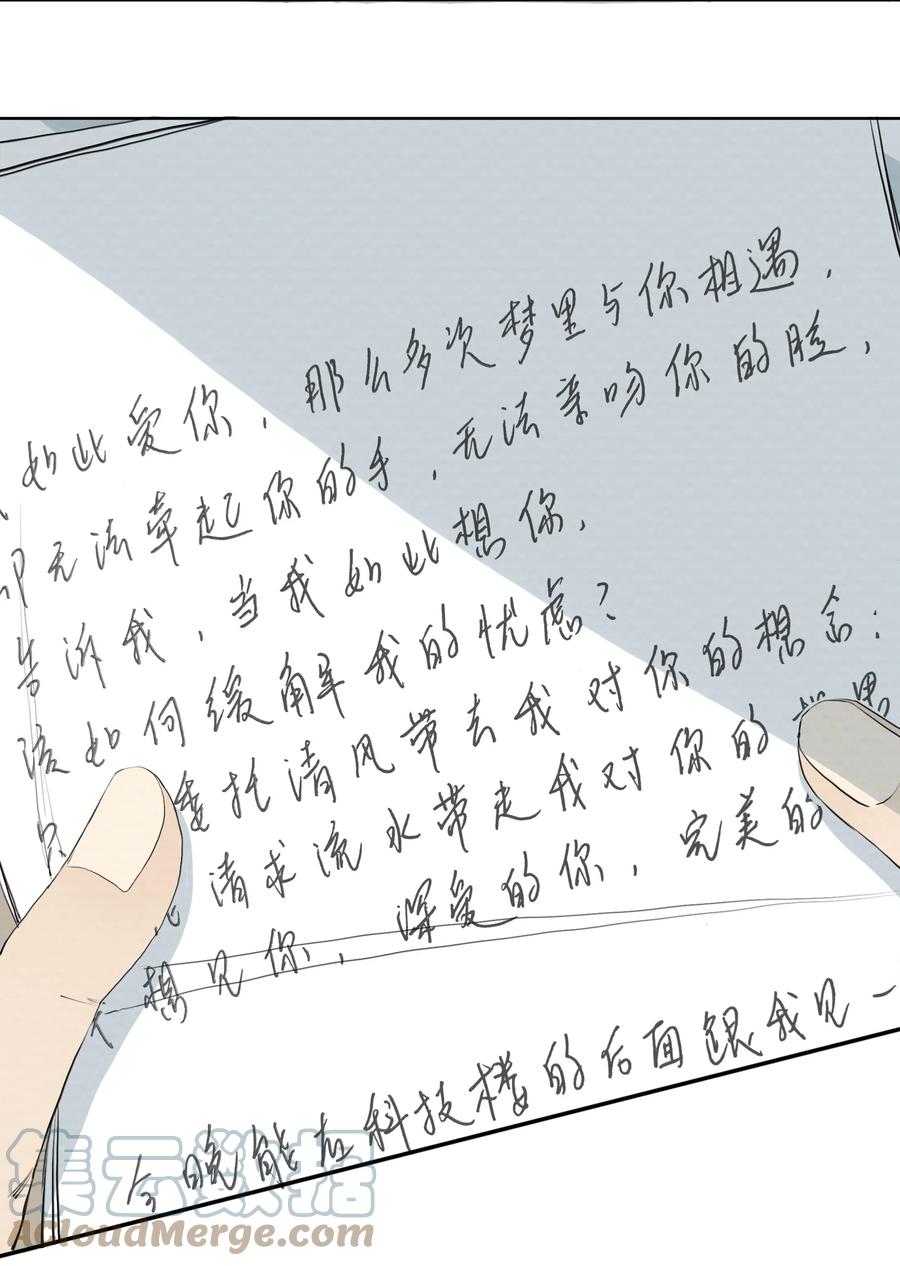 如此爱你，那么多次梦里与你相遇，
却无法牵起你的手，无法亲吻你的脸，
告诉我，当我如此想你，
该如何缓解我的忧虑？
委托清风带去我对你的想念；
请求流水带走我对你的
想见你，深爱的你，完美的
今晚能在科技楼的后面跟我见一
集云数据
AcloudMerge.com